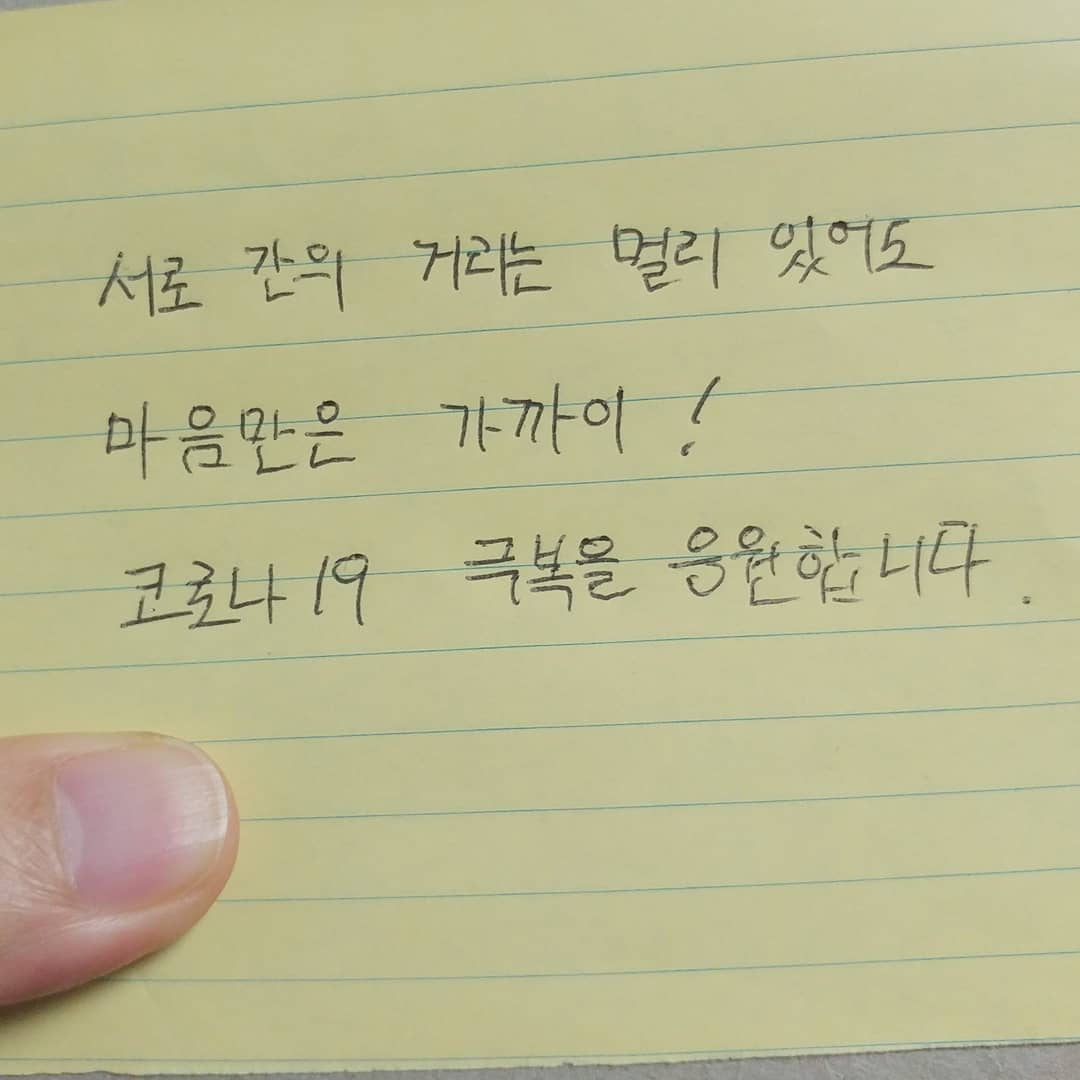 서로 간의 거리는 멀리 있어도
마음만은 가까이!
코로나19 극복을 응원합니다.